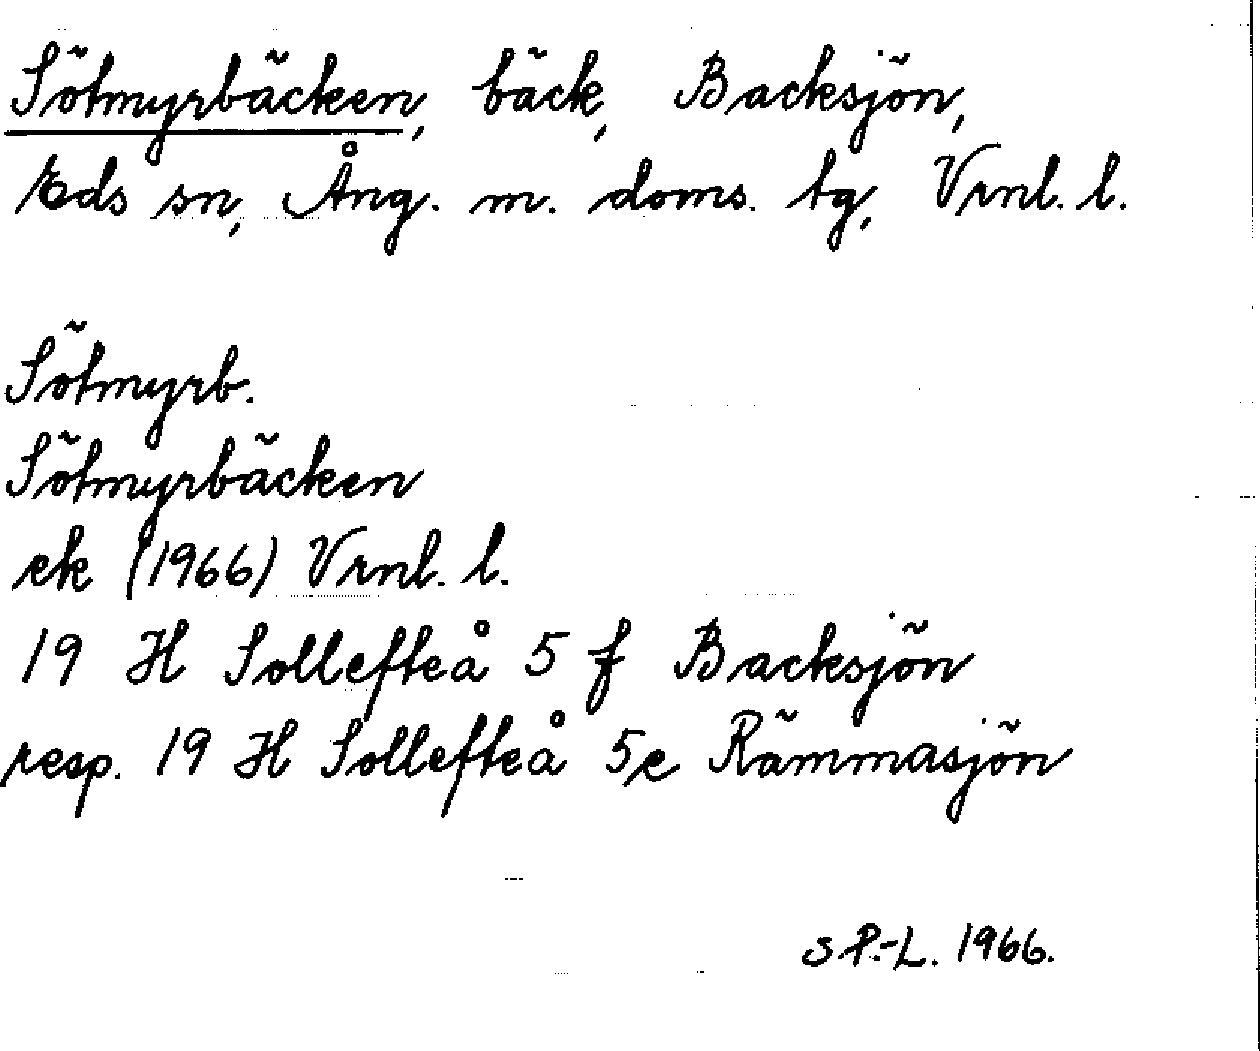 Sötmyrbäcken, bäck, Backsjön,
Eds sn, Ång. m. doms. tg, Vrnl. l.
Sötmyrb.
Sötmyrbäcken
ek (1966) Vrnl. l.
19 H Sollefteå 5 f Backsjön
resp. 19 H Sollefteå 5e Rämmasjön
S.P.-L. 1966.